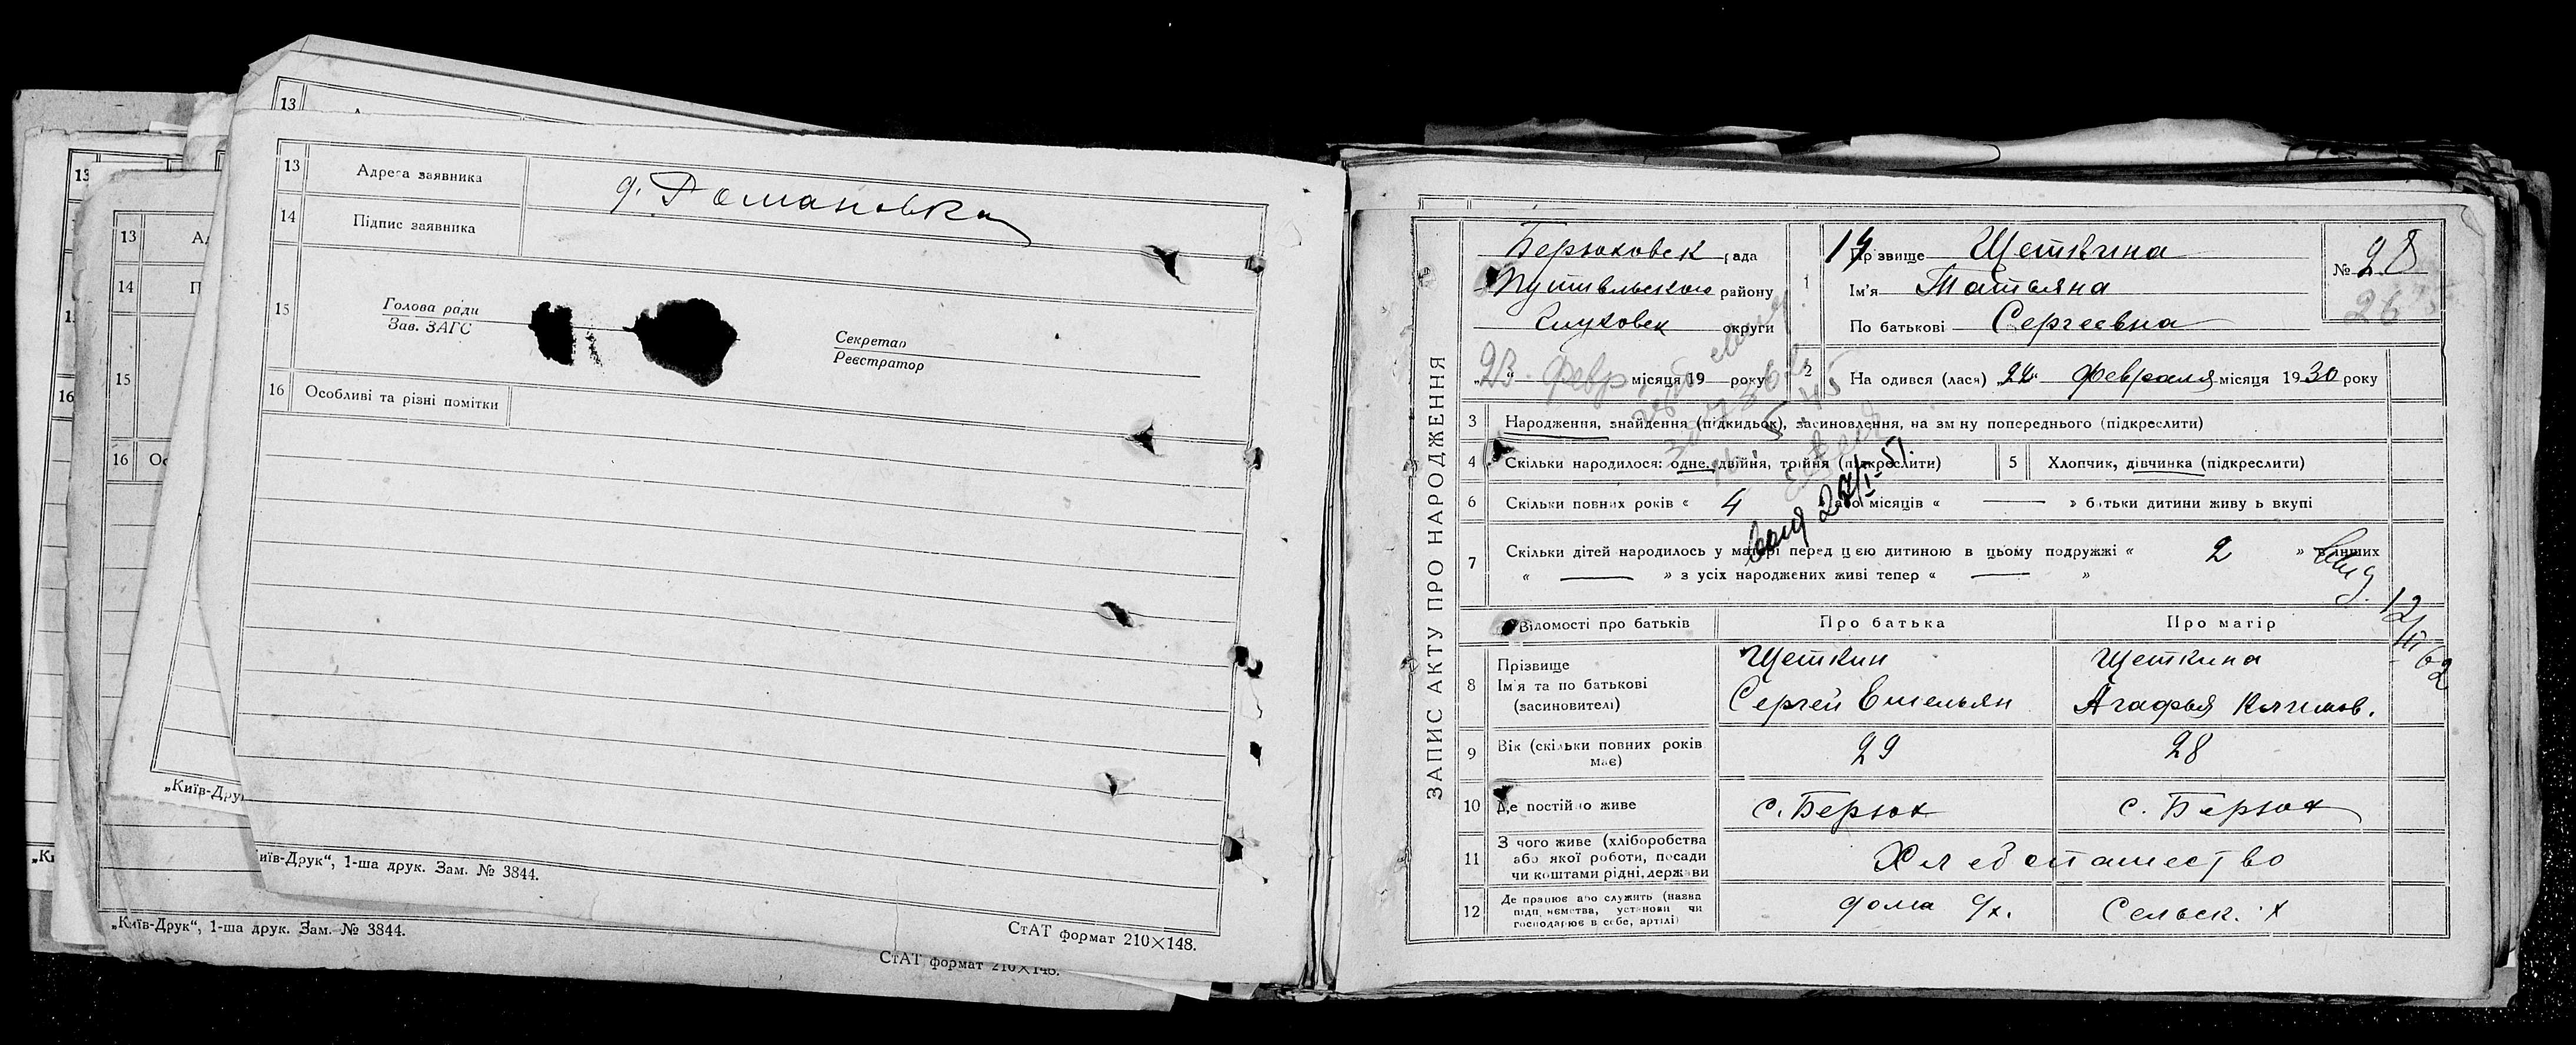 13 Адреса заявника д. Романовка
14 Підпис заявника
15 Голова ради
Зав. ЗАГС
Секретар
Реєстратор
16 Особливі та різні помітки
„Київ-Друк“, 1-ша друк. Зам. № 3844.
СтАТ формат 210×148.
13
13
14
15
16
„Київ-Друк“, 1-ша друк. Зам. № 3844.
СтАТ формат 210×148.
ЗАПИС АКТУ ПРО НАРОДЖЕННЯ
Берюховск рада
Путивльского району
Глуховск округи
„23“ Февр місяця 19 року
1 14 Прізвище Щеткина
Ім'я Татьяна
По батькові Сергеевна
№ 28
26
2 Народився (лася) „22“ февраля місяця 1930 року
3 Народження, знайдення (підкидьок), засиновлення, на зміну попереднього (підкреслити)
4 Скільки народилося: одне, двійня, трійня (підкреслити)
5 Хлопчик, дівчинка (підкреслити)
6 Скільки повних років « 4 або місяців « — » батьки дитини живуть вкупі
7 Скільки дітей народилось у матері перед цією дитиною в цьому подружжі « 2 » в інших
« — » з усіх народжених живі тепер « — »
27/I-51
12/III 62
Відомості про батьків Про батька Про матір
8 Прізвище Ім'я та по батькові (засиновителі)
Щеткин
Сергей Емельян
Щеткина
Агафья Климов.
9 Вік (скільки повних років має) 29 28
10 Де постійно живе с. Берюх с. Берюх
11 З чого живе (хліборобства або якої роботи, посади чи коштами рідні, держави
Хлебопашество
12 Де працює або служить (назва підприємства, установи чи господарює в себе, артілі)
дома с/х. Сельск. х